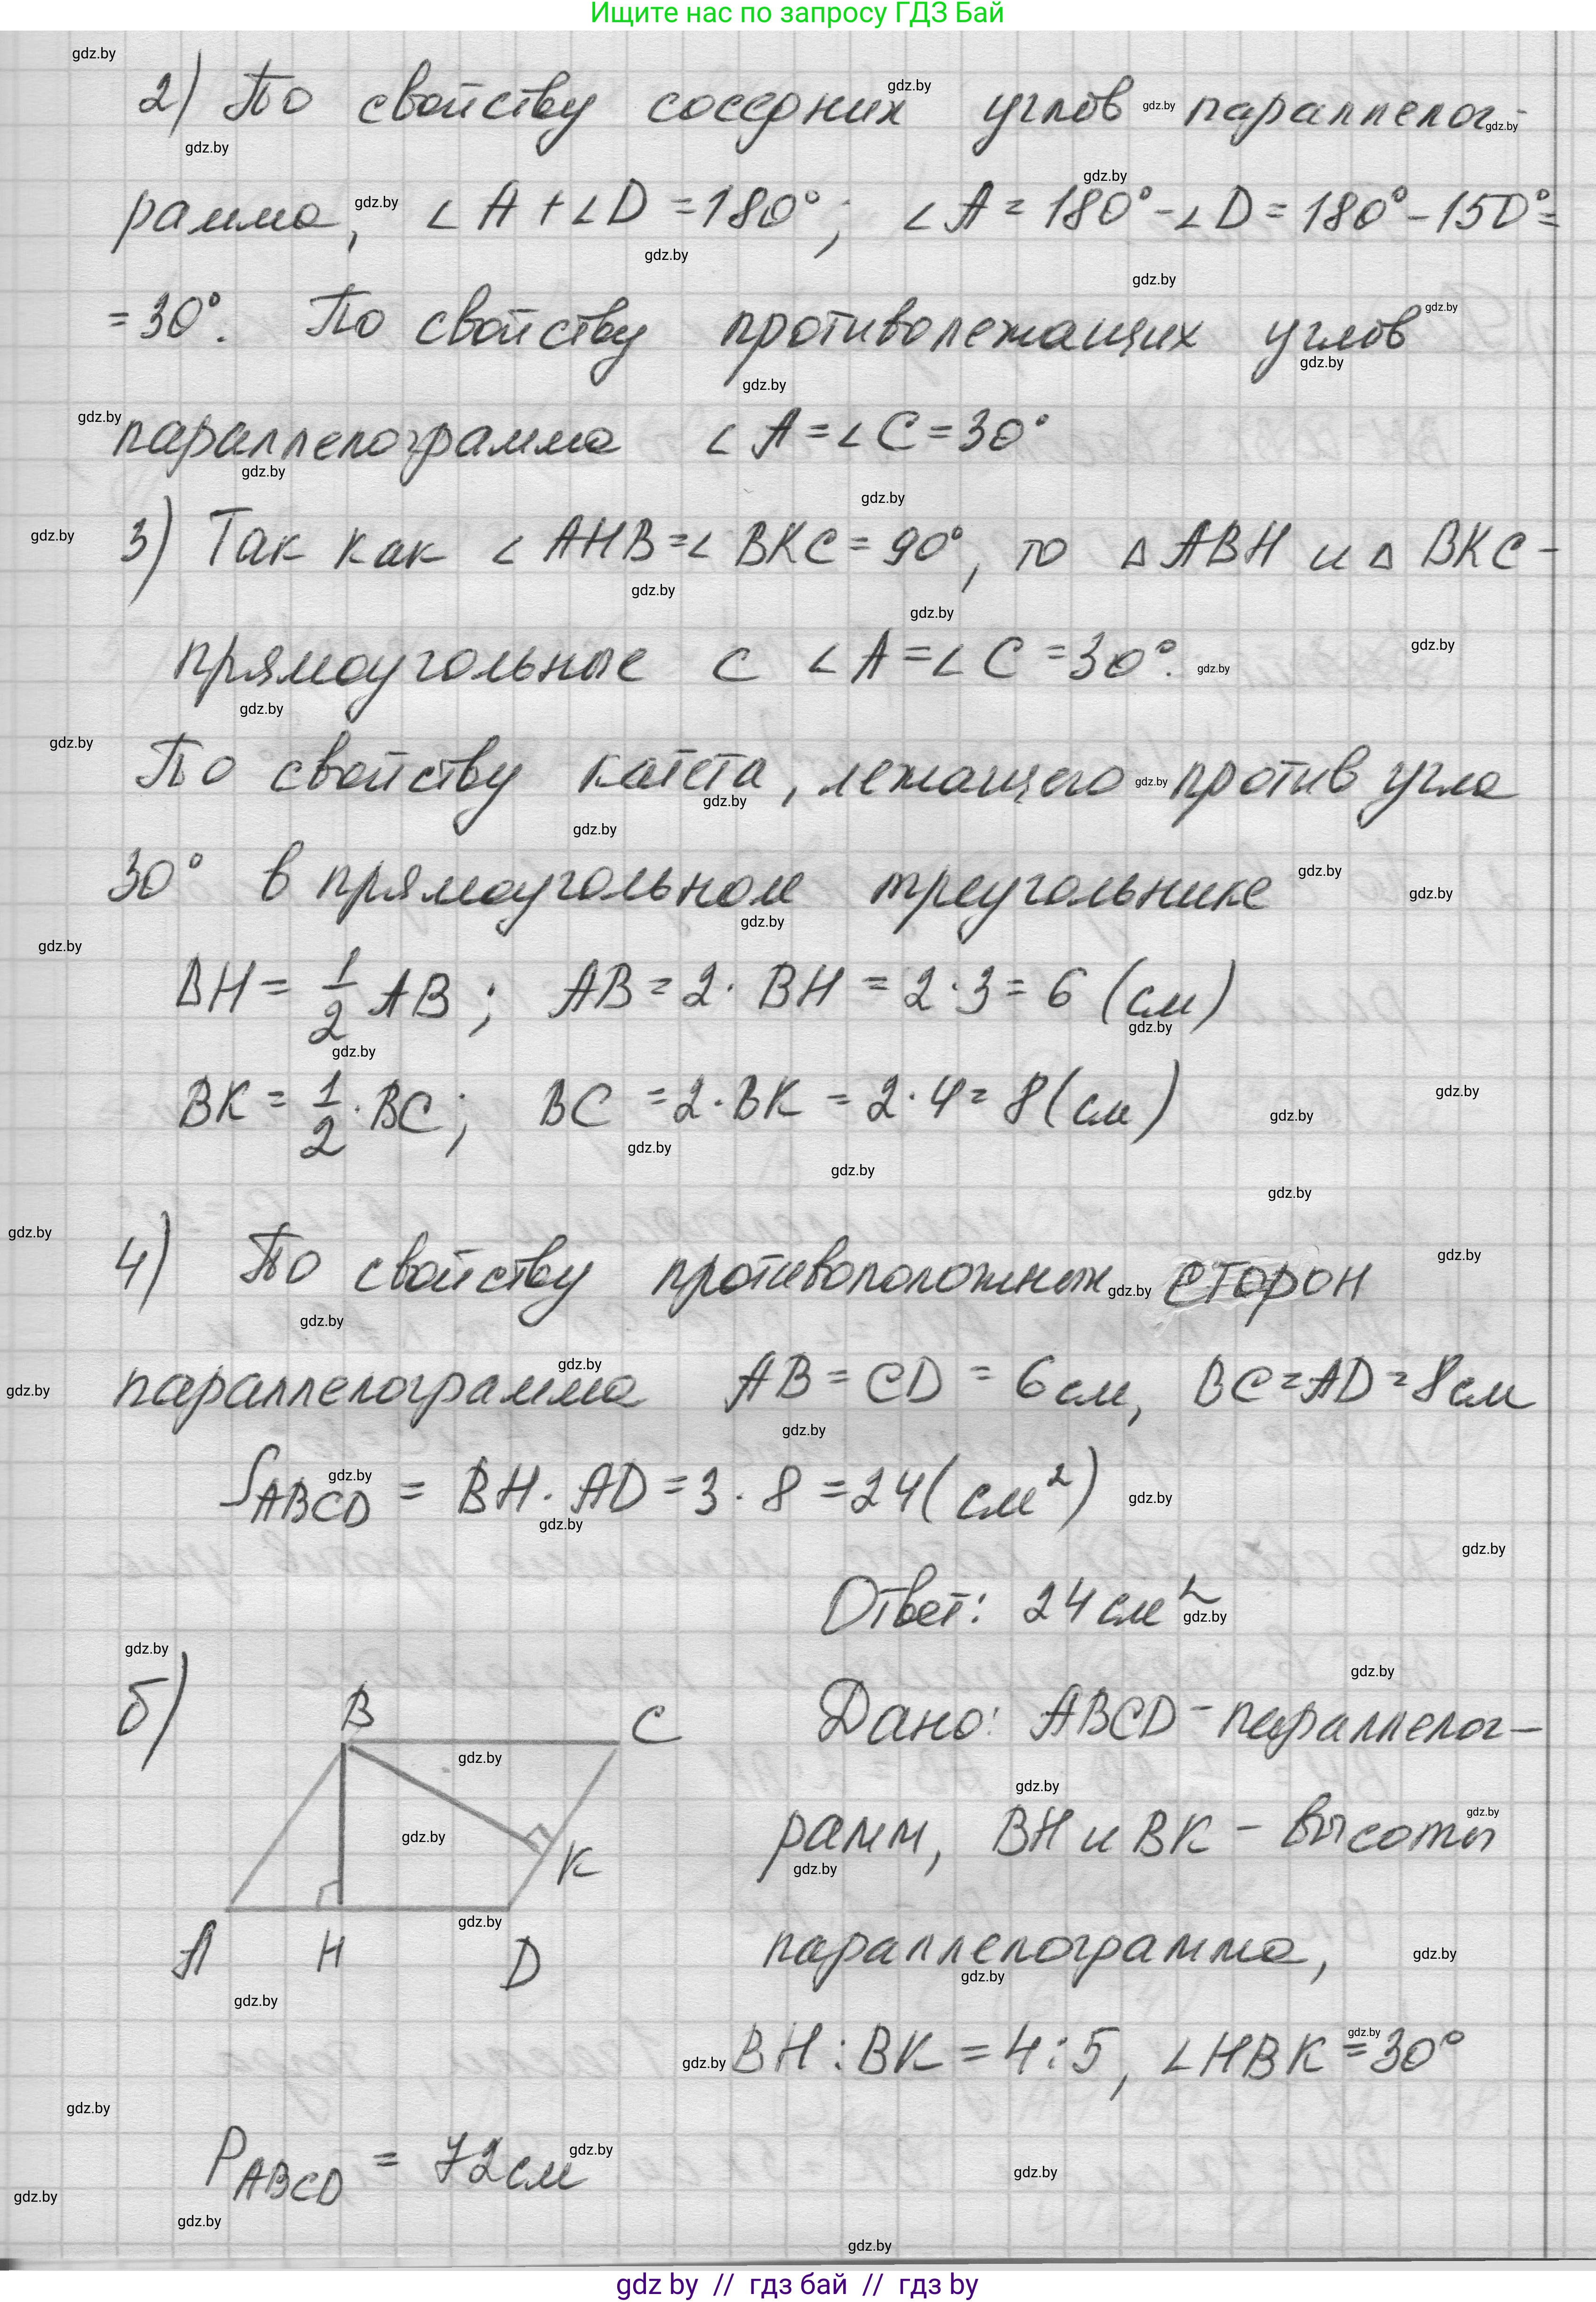 Ищите нас по запросу ГДЗ Бай
2) По свойству соседних углов параллелог-
рамма, ∠A + ∠D = 180°; ∠A = 180° - ∠D = 180° - 150° =
= 30°. По свойству противолежащих углов
параллелограмма ∠A = ∠C = 30°
3) Так как ∠AHB = ∠BKC = 90°, то △ABH и △BKC -
прямоугольные с ∠A = ∠C = 30°.
По свойству катета, лежащего против угла
30° в прямоугольном треугольнике
BH = 1/2 AB; AB = 2 · BH = 2 · 3 = 6 (см)
BK = 1/2 · BC; BC = 2 · BK = 2 · 4 = 8 (см)
4) По свойству противоположных сторон
параллелограмма AB = CD = 6 см, BC = AD = 8 см
S ABCD = BH · AD = 3 · 8 = 24 (см²)
Ответ: 24 см²
б) B C Дано: ABCD - параллелог-
K рамм, BH и BK - высоты
A H D параллелограмма,
BH : BK = 4 : 5, ∠HBK = 30°
P ABCD = 72 см
gdz.by
gdz by // гдз бай // гдз by